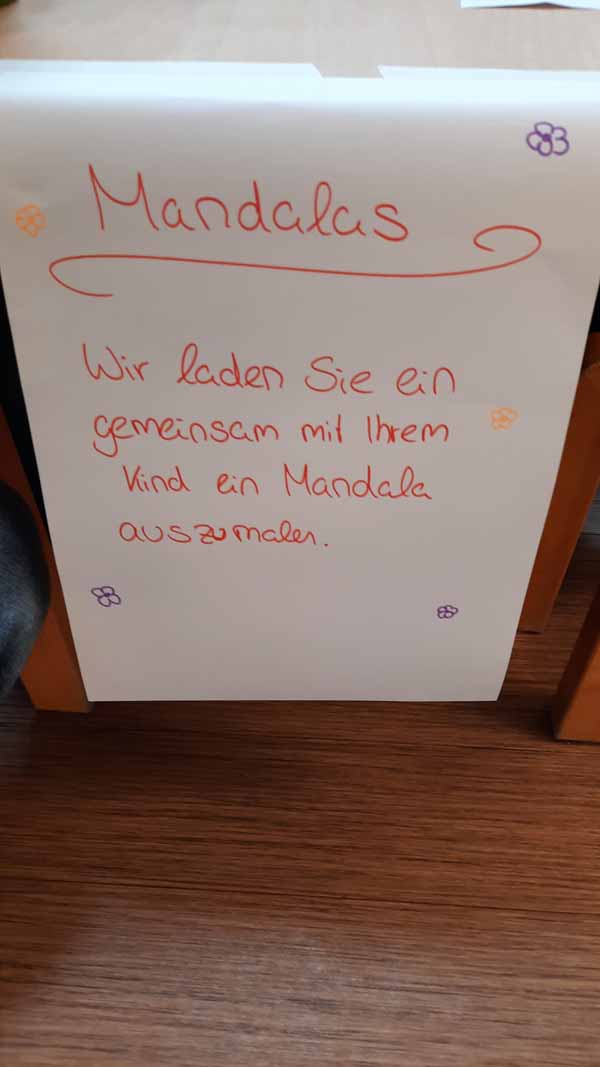 Mandalas
Wir laden Sie ein
gemeinsam mit Ihrem
Kind ein Mandala
auszumalen.